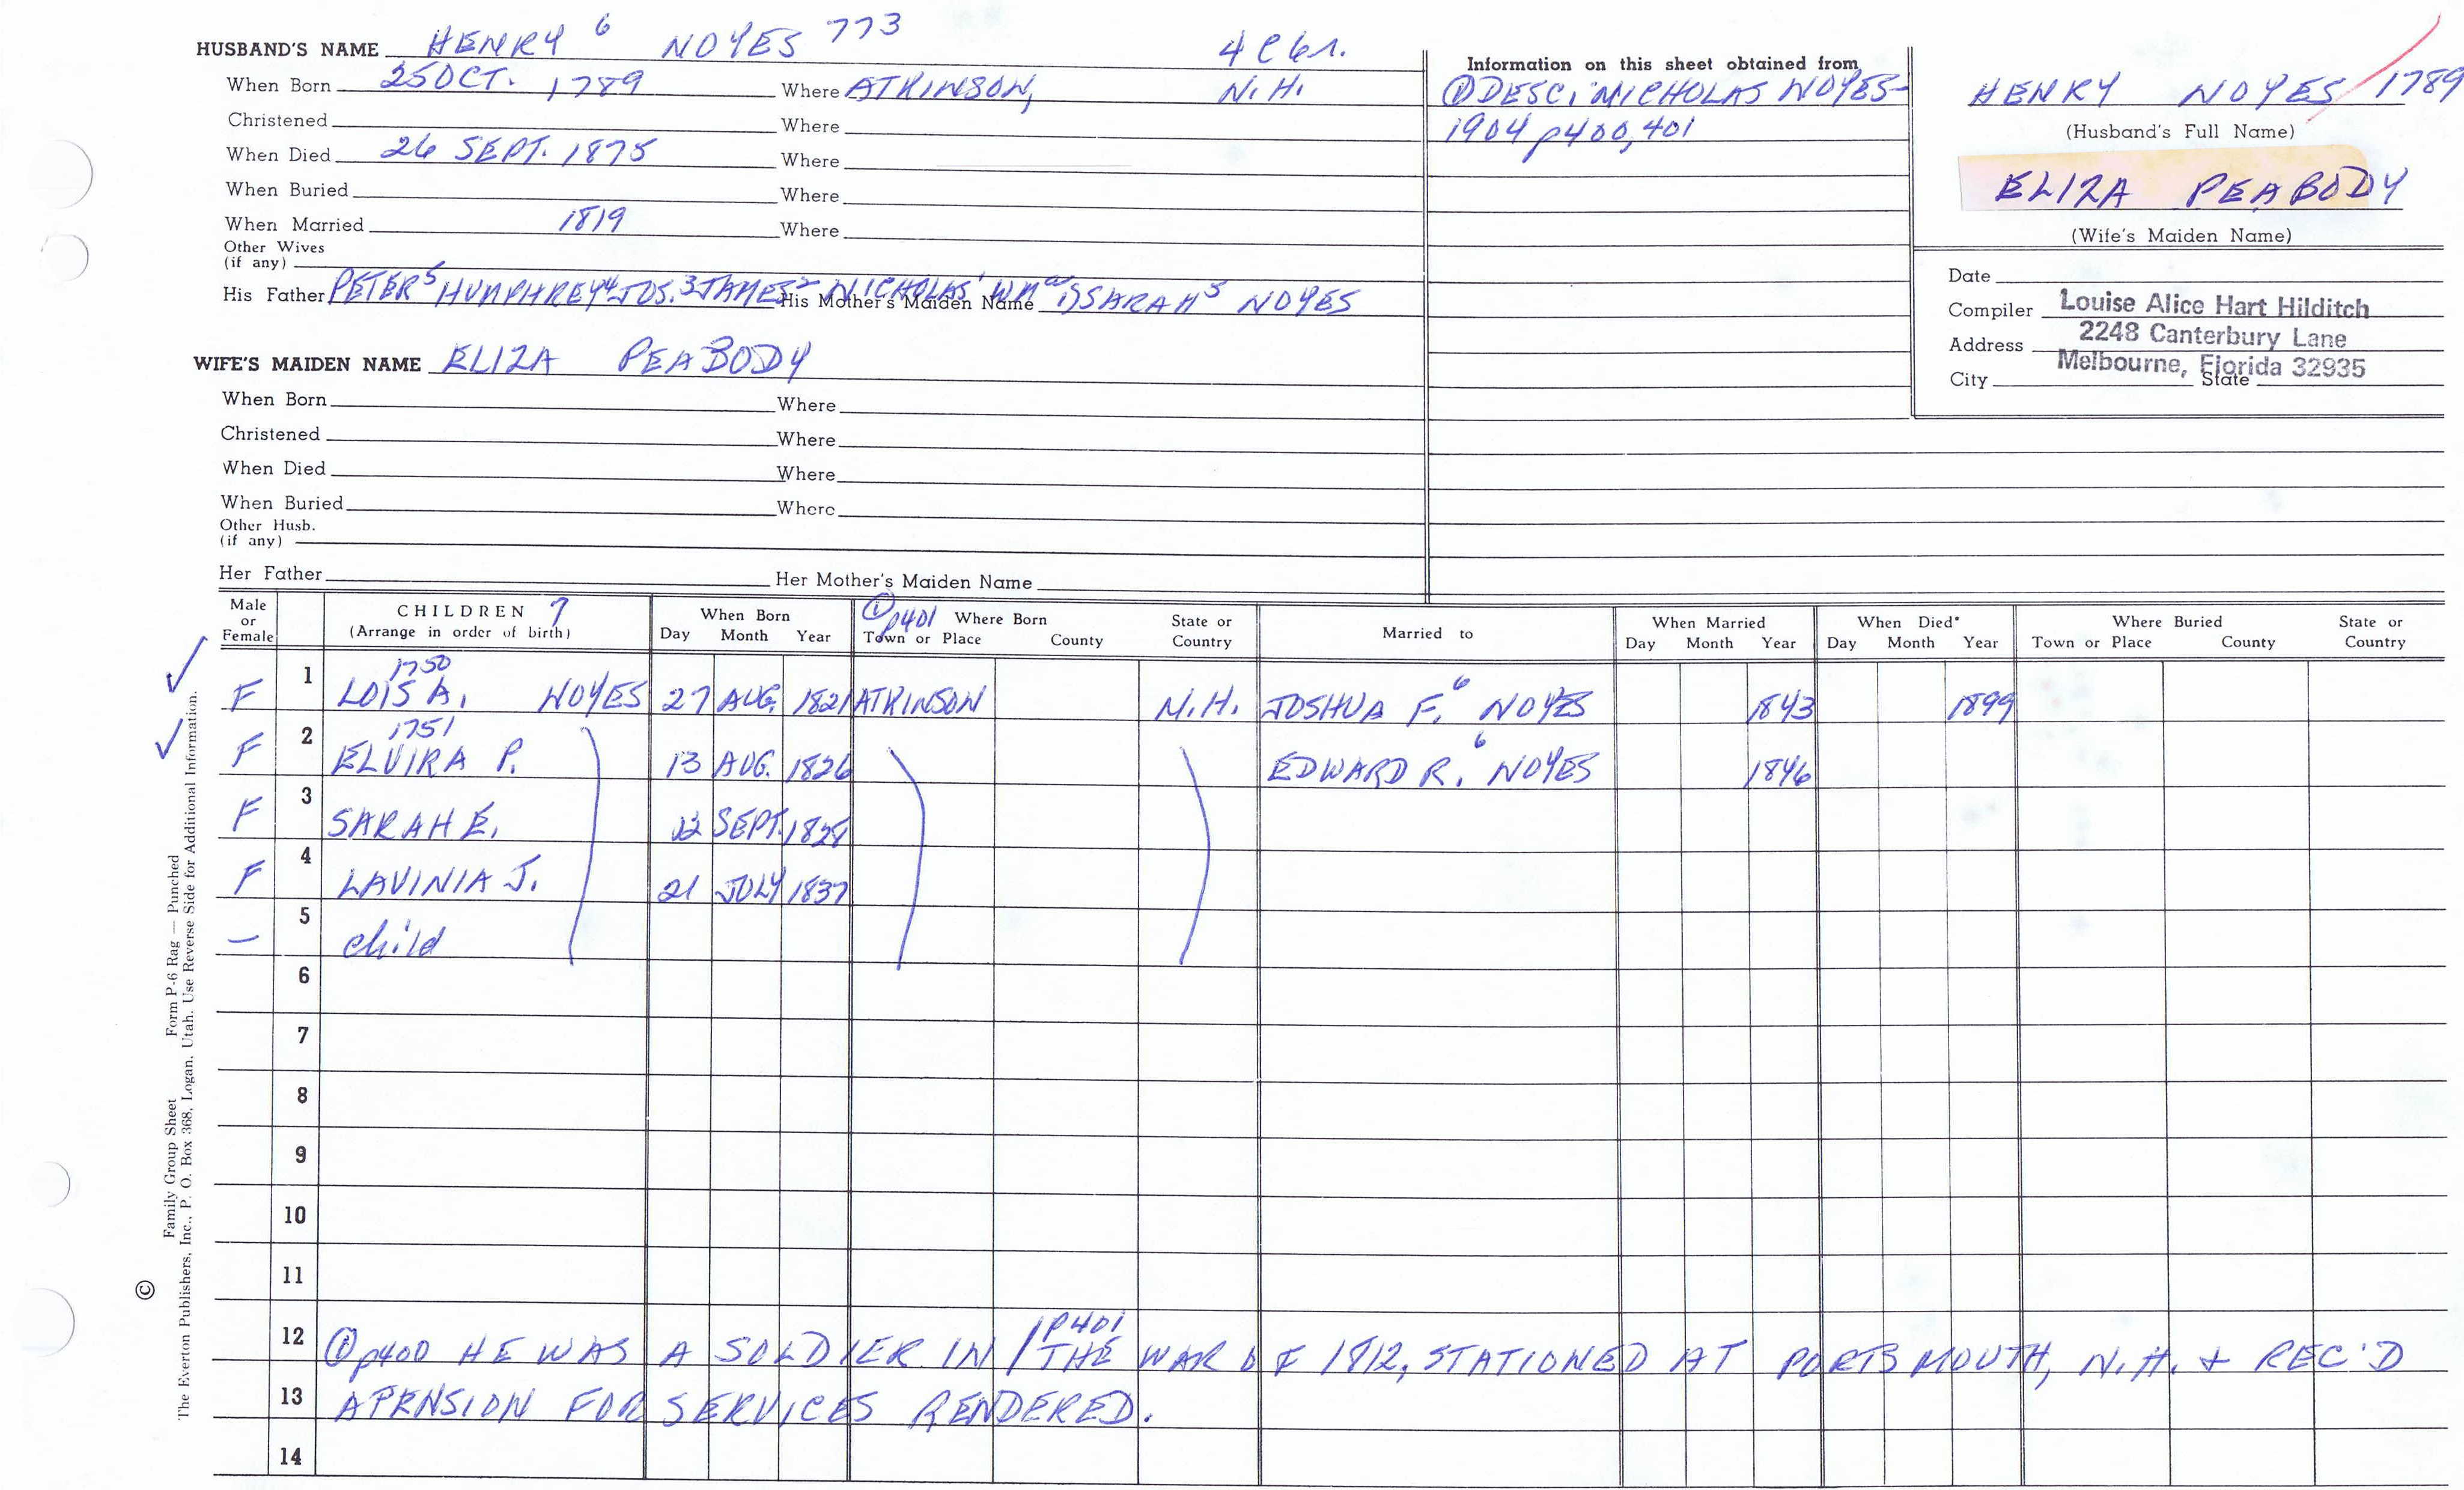 HUSBAND'S NAME HENRY 6 NOYES 773
When Born 25 OCT. 1789 Where ATKINSON, N.H.
Christened Where
When Died 26 SEPT. 1875 Where
When Buried Where
When Married 1819 Where
Other Wives
(if any)
His Father PETER 5 HUMPHREY 4 JOS. 3 JAMES 2 NICHOLAS 1 WM His Mother's Maiden Name SARAH 5 NOYES
WIFE'S MAIDEN NAME ELIZA PEABODY
When Born Where
Christened Where
When Died Where
When Buried Where
Other Husb.
(if any)
Her Father Her Mother's Maiden Name
Information on this sheet obtained from
① DESC. NICHOLAS NOYES-
1904 p400,401
HENRY NOYES 1789
(Husband's Full Name)
ELIZA PEABODY
(Wife's Maiden Name)
Date
Compiler Louise Alice Hart Hilditch
Address 2248 Canterbury Lane
Melbourne, Florida 32935
City State
Male or Female CHILDREN 7 (Arrange in order of birth) When Born Day Month Year ① p401 Where Born Town or Place County State or Country Married to When Married Day Month Year When Died* Day Month Year Where Buried Town or Place County State or Country
1750
F 1 LOIS A. NOYES 27 AUG. 1821 ATKINSON N.H. JOSHUA F. 6 NOYES 1843 1899
1751
F 2 ELVIRA P. 13 AUG. 1826 EDWARD R. 6 NOYES 1846
F 3 SARAH E. SEPT. 1828
F 4 LAVINIA J. 21 JULY 1837
– 5 child
6
7
8
9
10
11
12 ① p400 HE WAS A SOLDIER IN / p401 THE WAR OF 1812, STATIONED AT PORTSMOUTH, N.H. + REC'D
13 A PENSION FOR SERVICES RENDERED.
14
© Family Group Sheet Form P-6 Rag — Punched
The Everton Publishers, Inc., P. O. Box 368, Logan, Utah. Use Reverse Side for Additional Information.